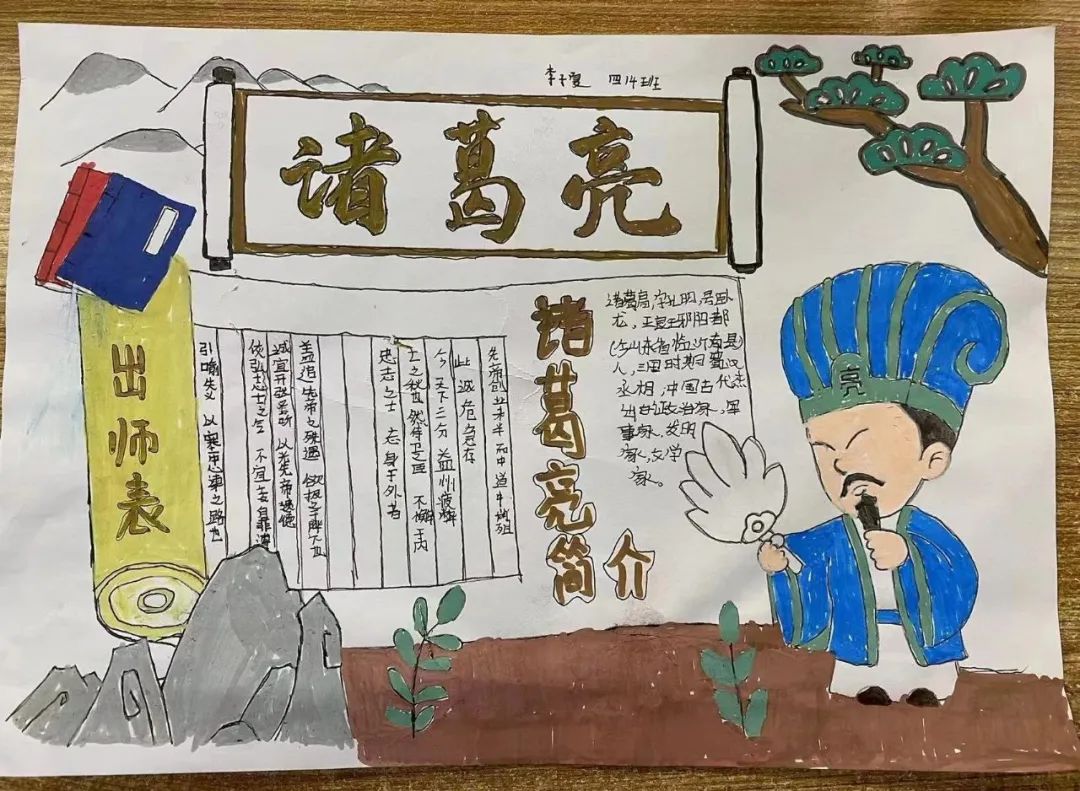 李子夏 四14班
诸葛亮
出师表
先帝创业未半 而中道中崩殂
此诚危急存
今天下三分 益州疲弊
士之秋也 然侍卫之臣 不懈于内
忠志之士 忘身于外者
盖追先帝之殊遇 欲报之于陛下也
诚宜开张圣听 以光先帝遗德
恢弘志士之气 不宜妄自菲薄
引喻失义 以塞忠谏之路也
诸葛亮简介
诸葛亮,字孔明,号卧
龙,
(今山东省临沂市
人,三国时期蜀汉
丞相,中国古代杰
出的政治家,军
事家,发明
家,文学
家。
亮